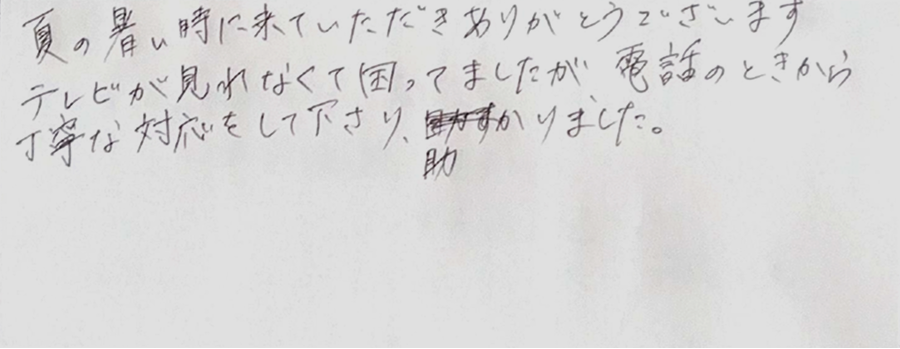 夏の暑い時に来ていただきありがとうございます
テレビが見れなくて困ってましたが、電話のときから
丁寧な対応をして下さり、助かりました。